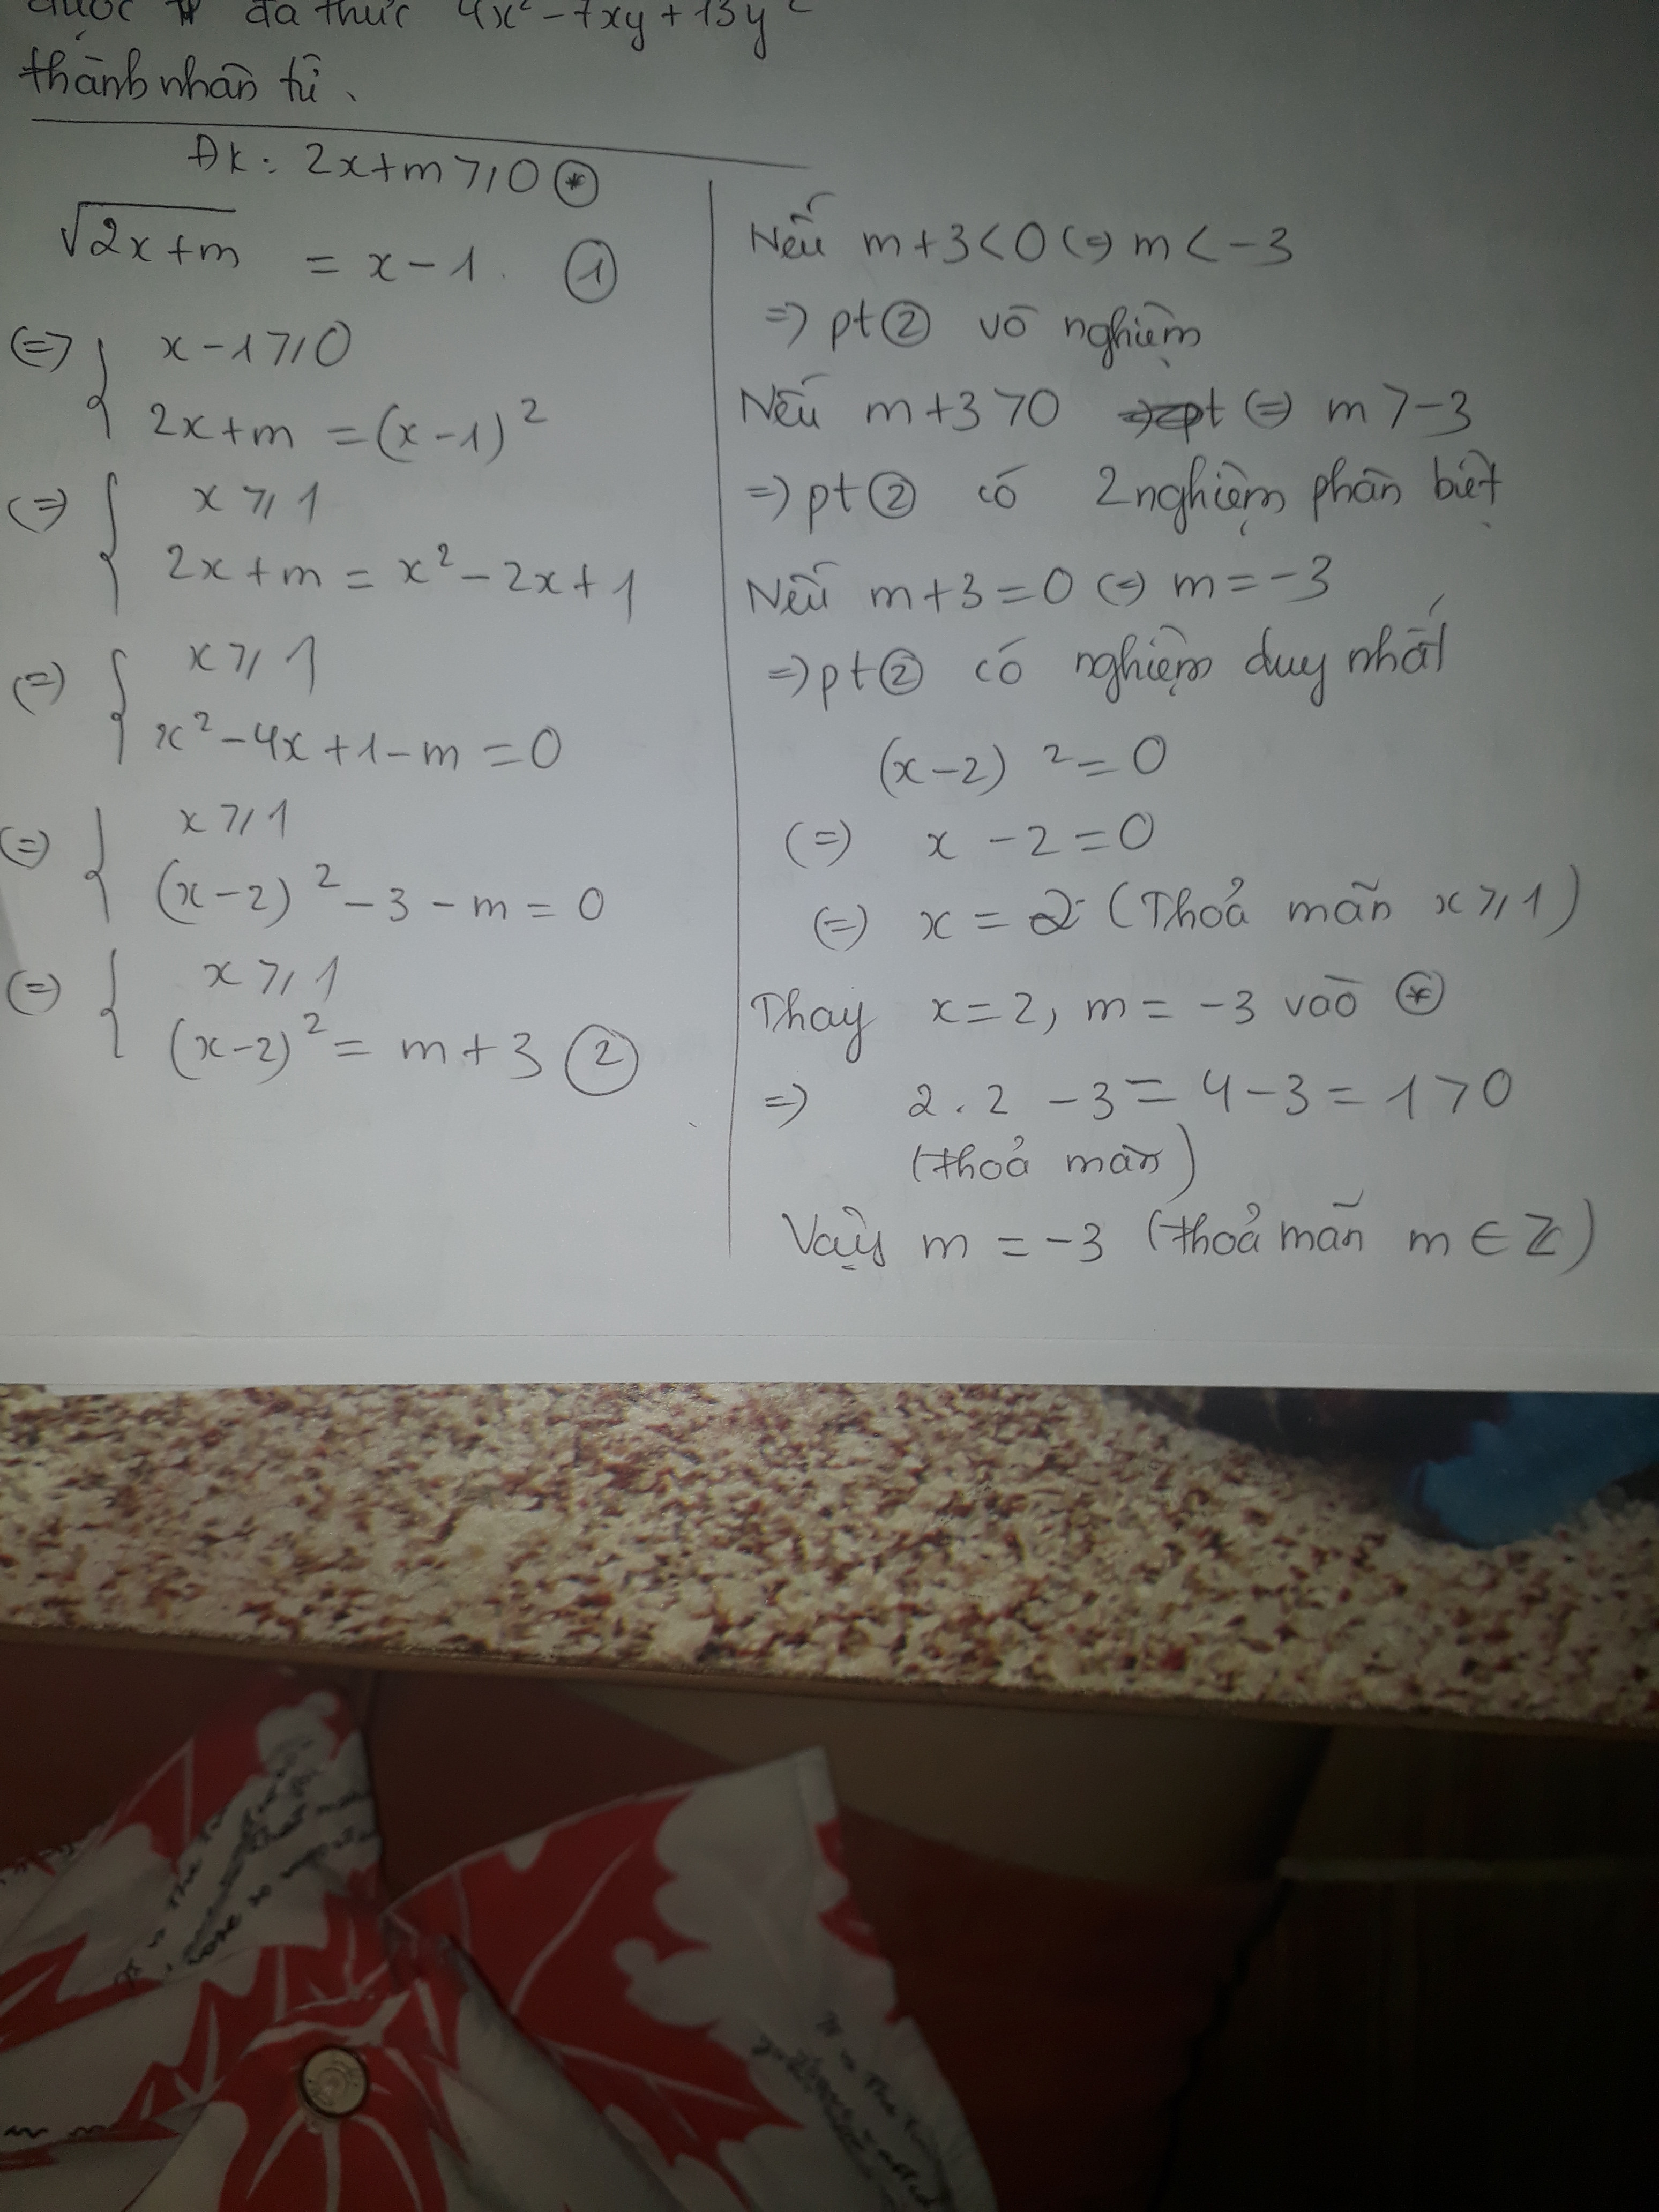 được đa thức 4x² - 7xy + 13y²
thành nhân tử.
ĐK: 2x+m ⩾ 0 (*)
√2x+m = x-1. (1)
(=) { x-1 ⩾ 0
2x+m = (x-1)²
(=) { x ⩾ 1
2x+m = x² - 2x + 1
(=) { x ⩾ 1
x² - 4x + 1 - m = 0
(=) { x ⩾ 1
(x-2)² - 3 - m = 0
(=) { x ⩾ 1
(x-2)² = m+3 (2)
Nếu m+3 < 0 (=) m < -3
=) pt (2) vô nghiệm
Nếu m+3 > 0 (=) m > -3
=) pt (2) có 2 nghiệm phân biệt
Nếu m+3 = 0 (=) m = -3
=) pt (2) có nghiệm duy nhất
(x-2)² = 0
(=) x - 2 = 0
(=) x = 2 (Thoả mãn x ⩾ 1)
Thay x=2, m = -3 vào (*)
=) 2.2 - 3 = 4 - 3 = 1 > 0
(thoả mãn)
Vậy m = -3 (thoả mãn m ∈ Z)